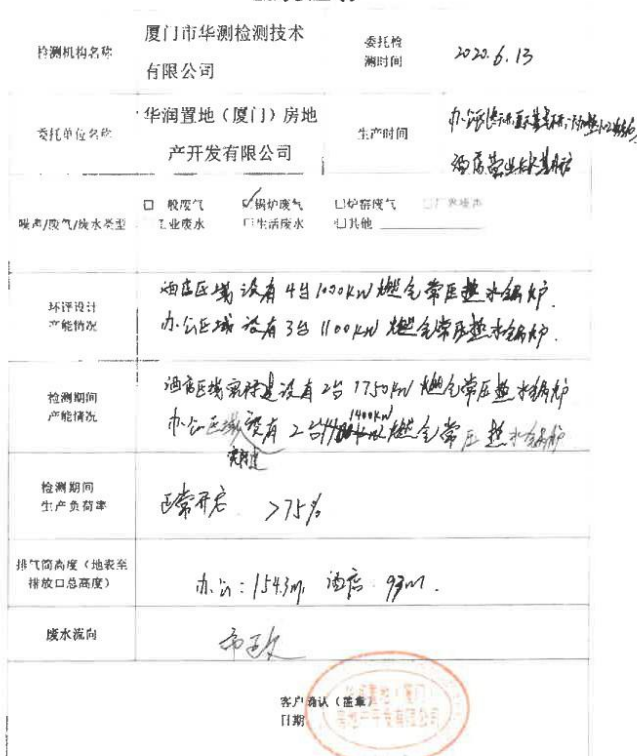 检测机构名称
厦门市华测检测技术
有限公司
委托检
测时间
2020.6.13
委托单位名称
华润置地（厦门）房地
产开发有限公司
生产时间
酒店营业
噪声/废气/废水类型
□一般废气 ☑锅炉废气 □炉窑废气 □厂界噪声
工业废水 □生活废水 □其他
环评设计
产能情况
酒店区域设有4台1000KW燃气常压热水锅炉.
办公区域设有3台1100KW燃气常压热水锅炉.
检测期间
产能情况
酒店区域实际建设有2台1750KW燃气常压热水锅炉
1400KW
办公区域设有2台燃气常压热水锅炉
实际建
检测期间
生产负荷率
正常开启 >75%
排气筒高度（地表至
排放口总高度）
办公:154.3m, 酒店:93m.
废水流向
市政
客户确认（盖章）
日期
华润置地（厦门）
房地产开发有限公司